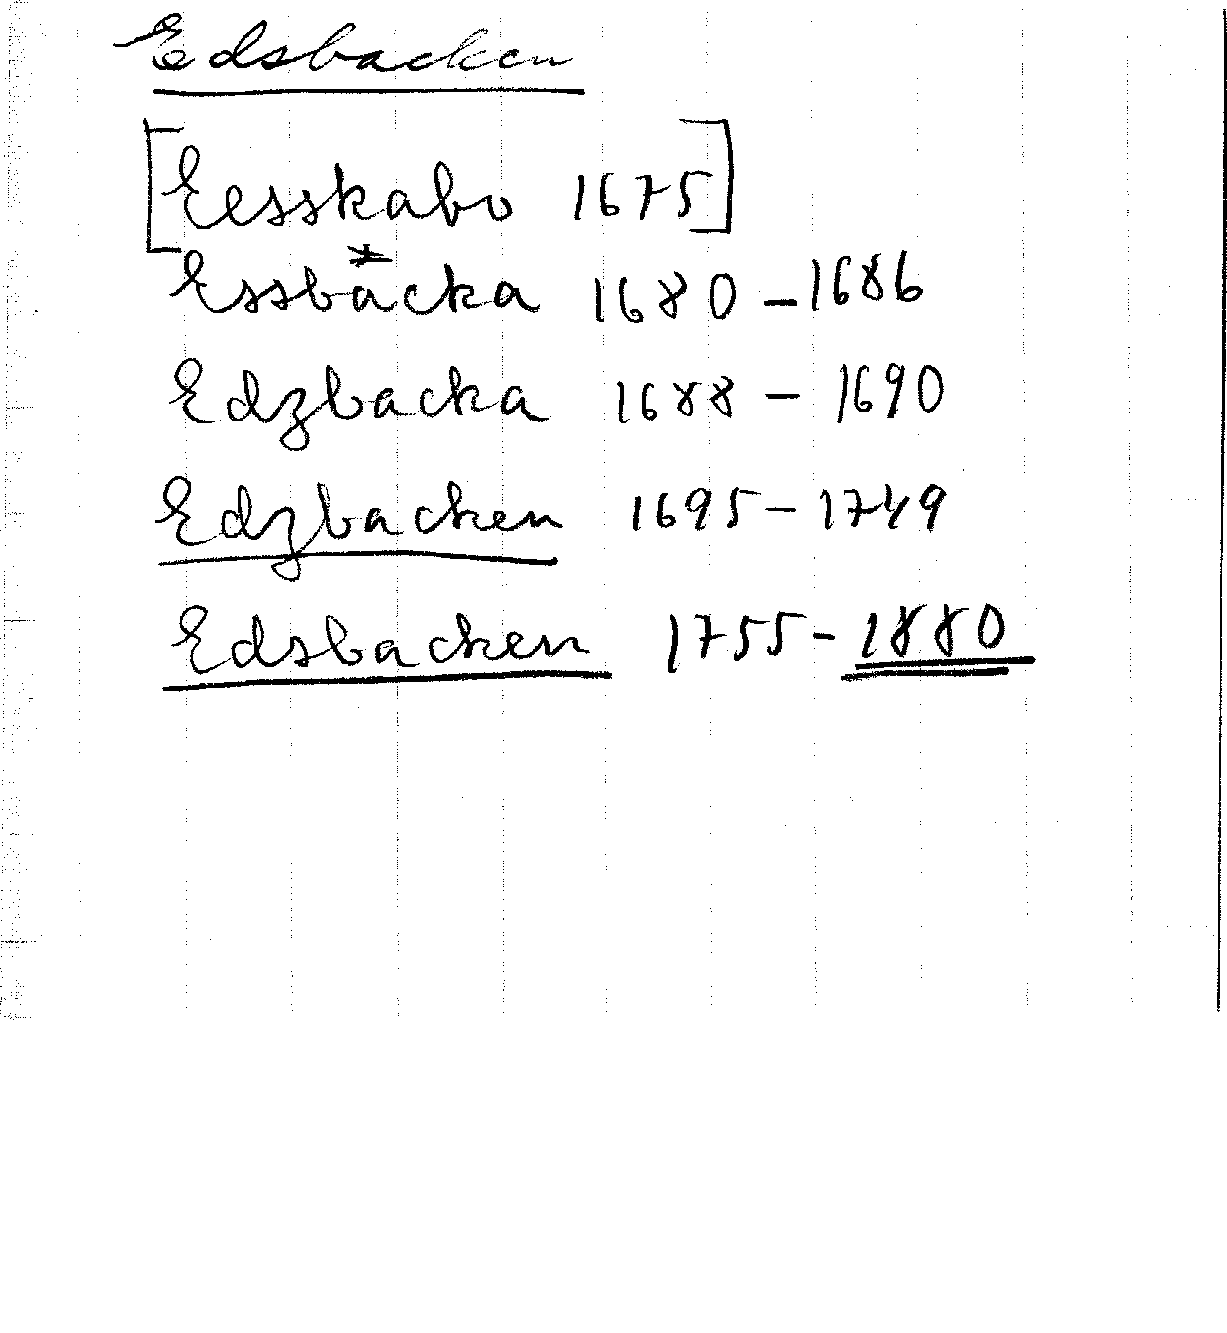 Edsbacken
[Eesskabo 1675]
Essbacka 1680 - 1686
Edzbacka 1688 - 1690
Edzbacken 1695 - 1749
Edsbacken 1755 - 1880